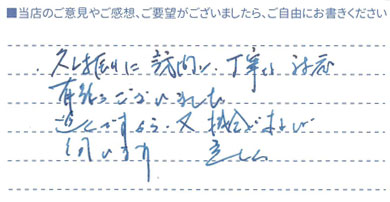 ■当店のご意見やご感想、ご要望がございましたら、ご自由にお書きください
・久し振りに 訪問し、丁寧な 対応
有難うございました
近くですから 又 機会があれば
伺います